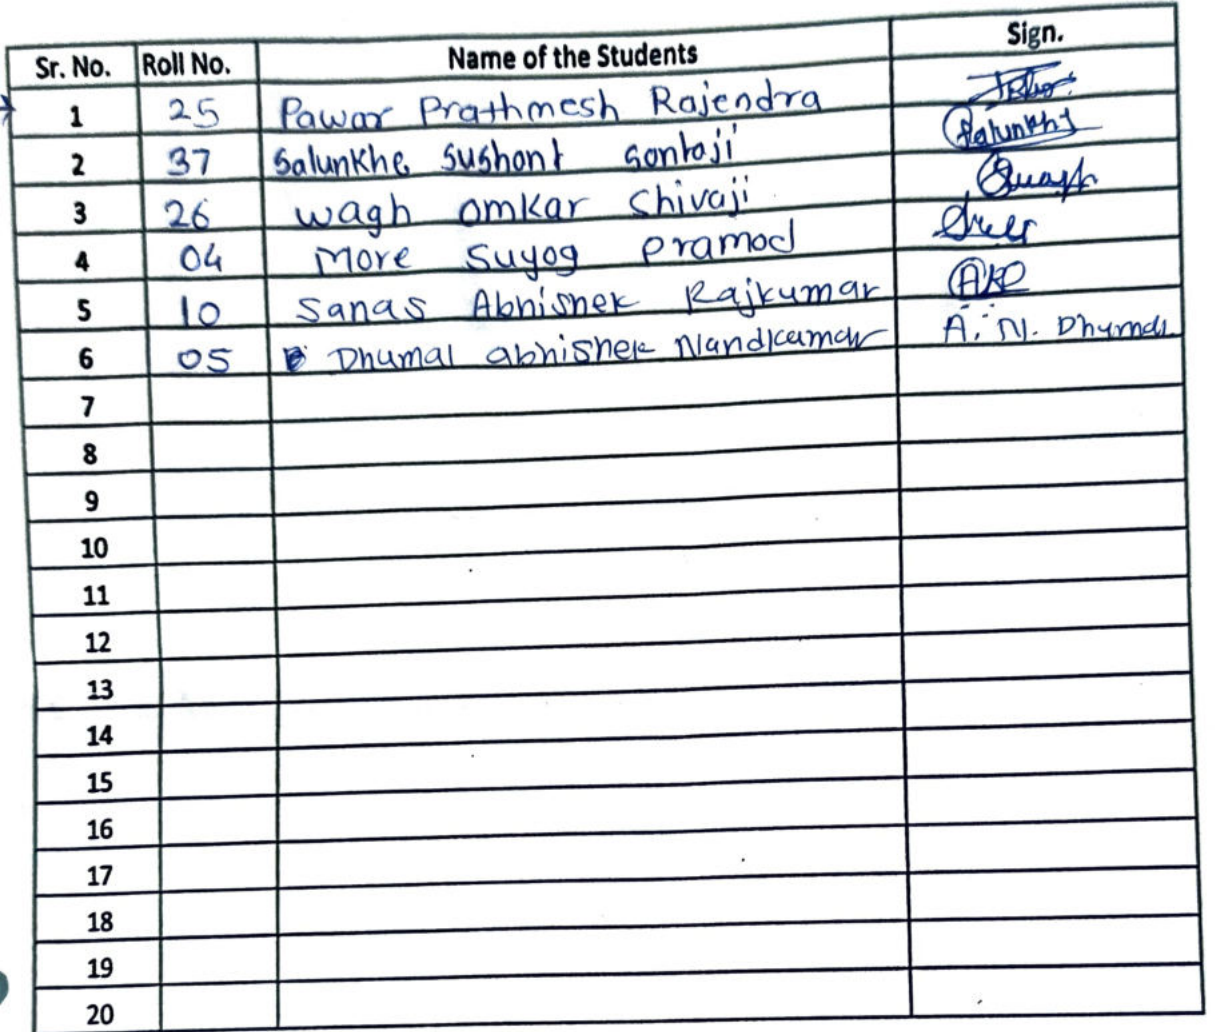 Sr. No. Roll No. Name of the Students Sign.
1 25 Pawar Prathmesh Rajendra
2 37 Salunkhe Sushant Santaji Salunkhe
3 26 wagh omkar Shivaji
4 04 More Suyog Pramod
5 10 Sanas Abhishek Rajkumar
6 05 Dhumal abhishek Nandkumar A. N. Dhumal
7
8
9
10
11
12
13
14
15
16
17
18
19
20